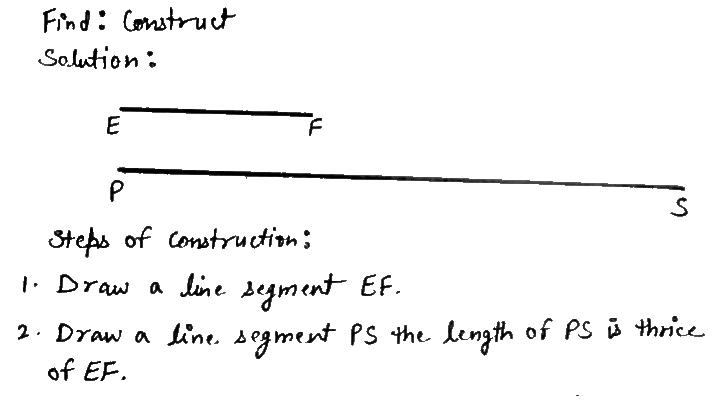 Find: Construct
Solution:
E F
P S
Steps of Construction:
1. Draw a line segment EF.
2. Draw a line segment PS the length of PS is thrice
of EF.